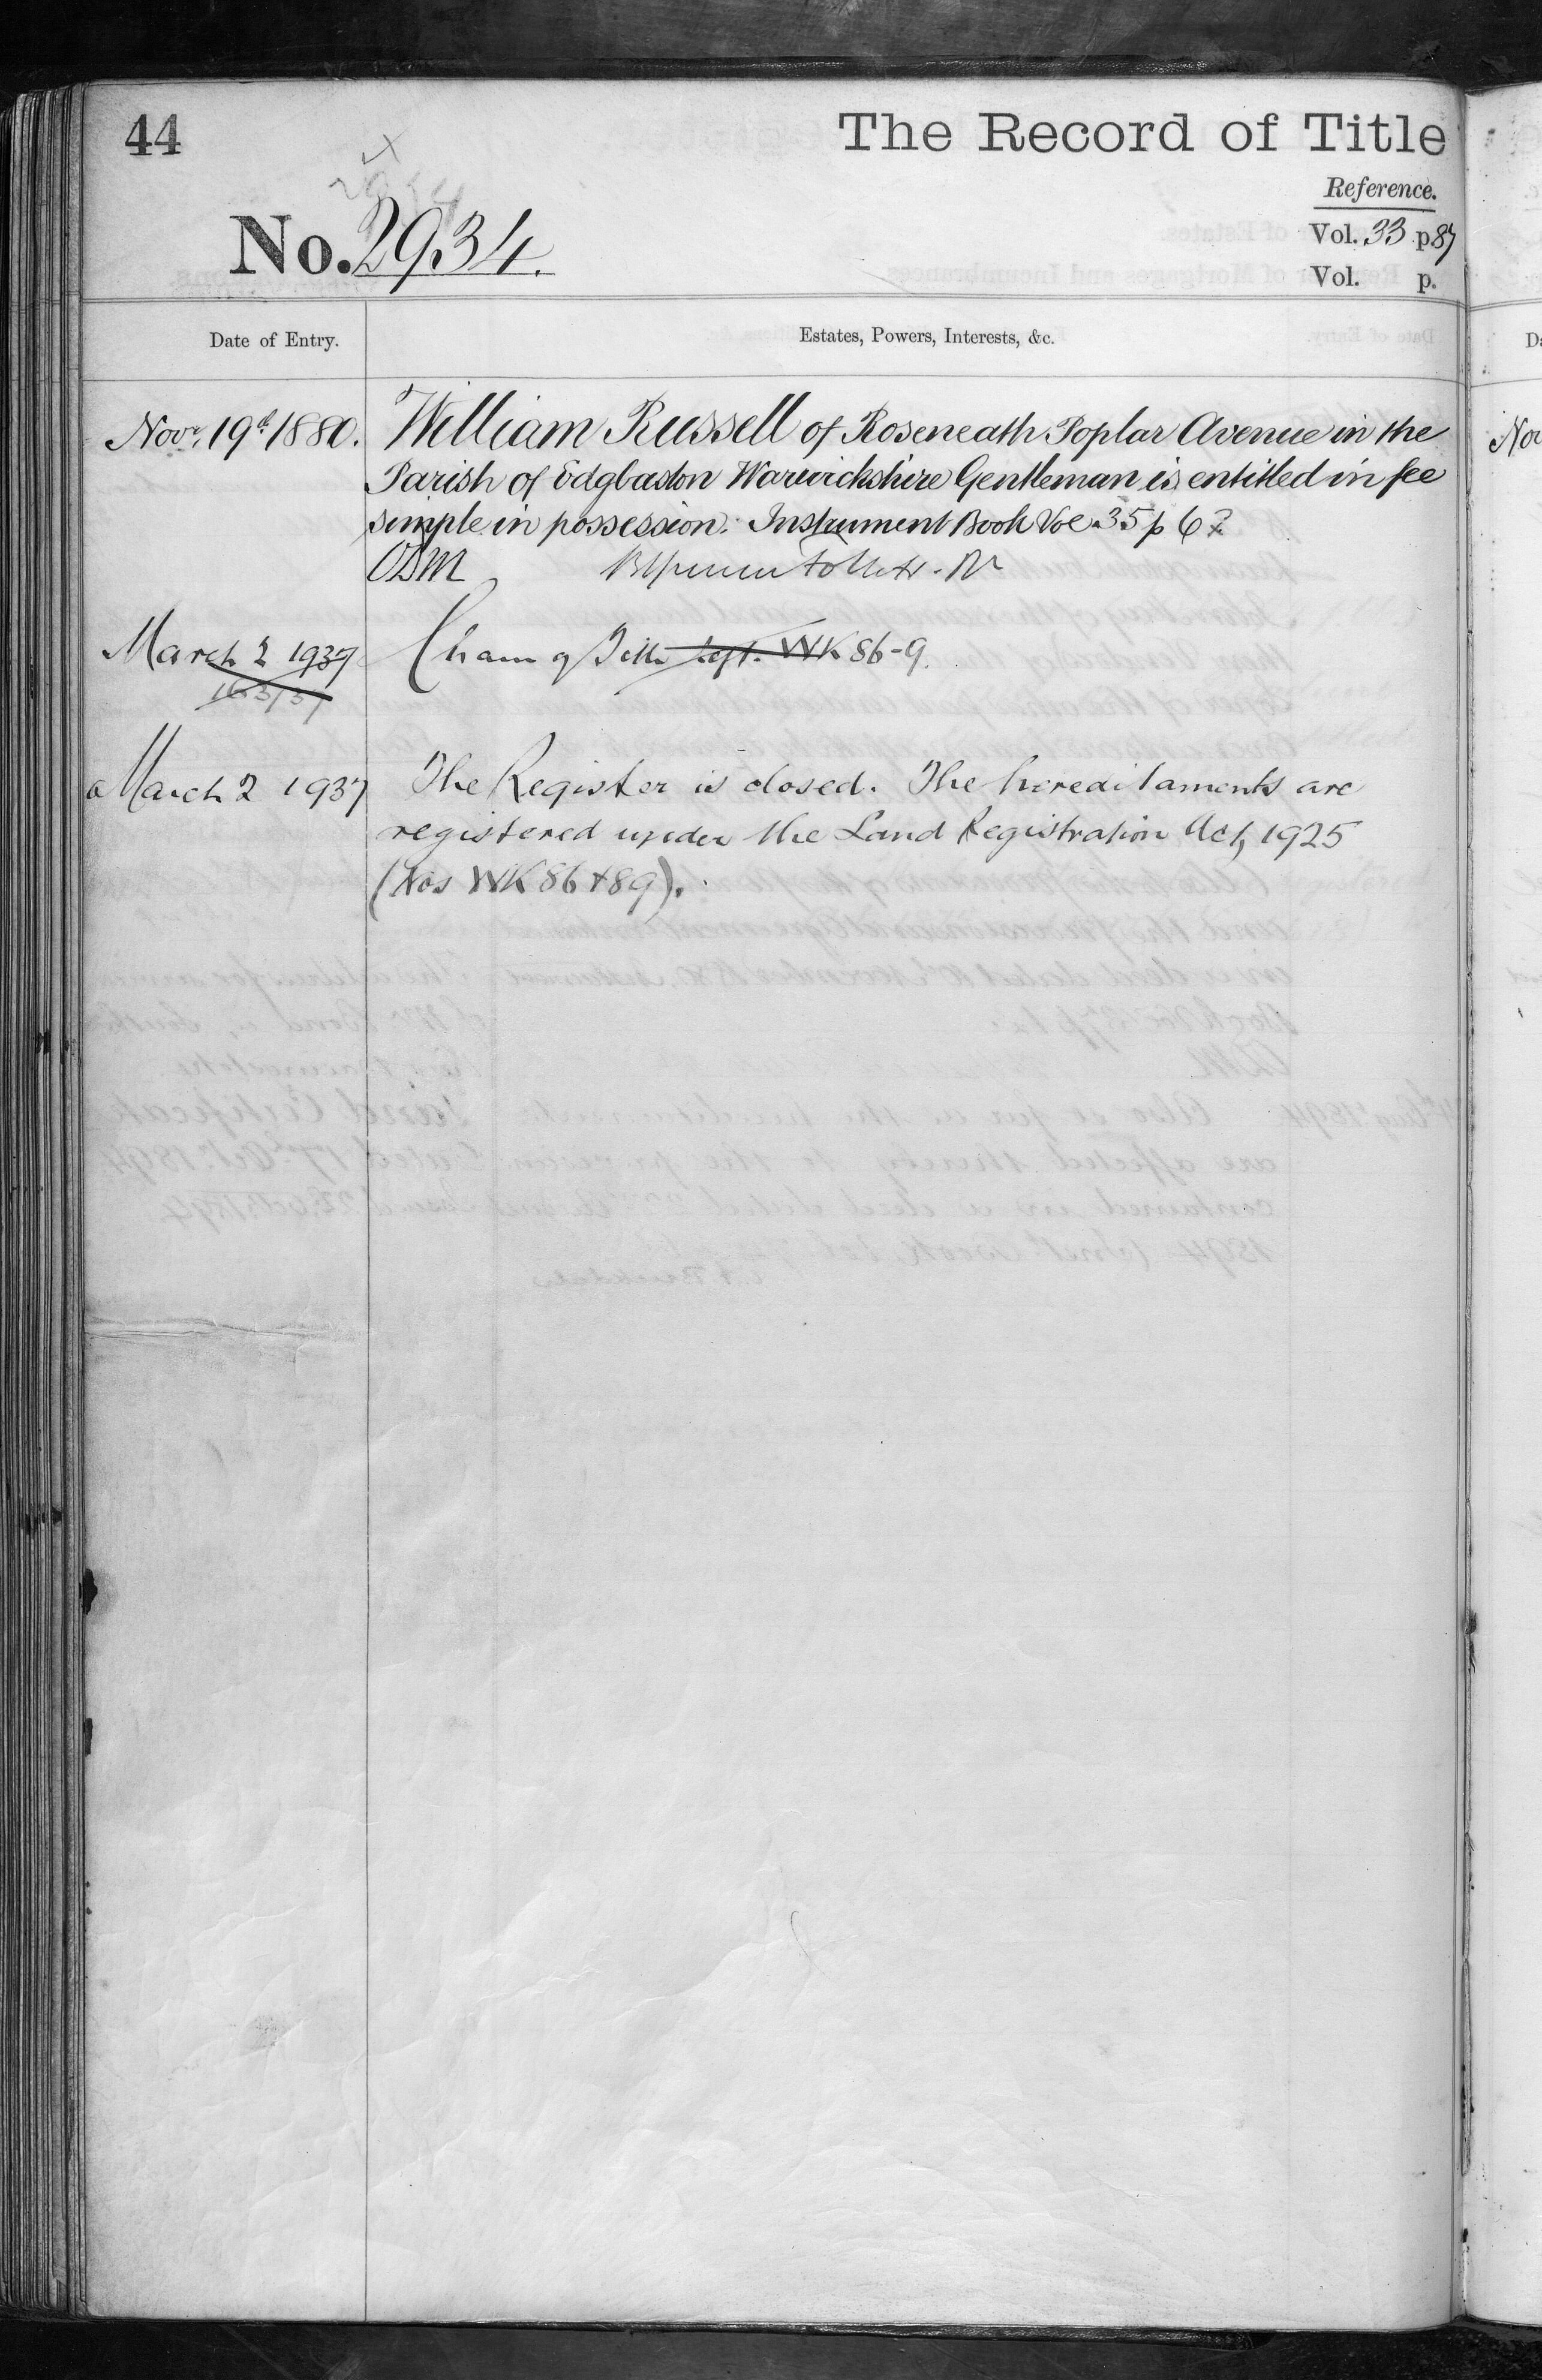 44
The Record of Title
Reference.
No. 2934.
Vol. 33 p 87
Vol. p.
Date of Entry.
Estates, Powers, Interests, &c.
Novr. 19th 1880.
William Russell of Roseneath Poplar Avenue in the
Parish of Edgbaston Warwickshire Gentleman is entitled in fee
simple in possession. Instrument Book Vol 35 p 62
March 2 1937
16 3/37
of Title WK 86-9.
March 2 1937
The Register is closed. The hereditaments are
registered under the Land Registration Act, 1925
(Nos WK 86 + 89).